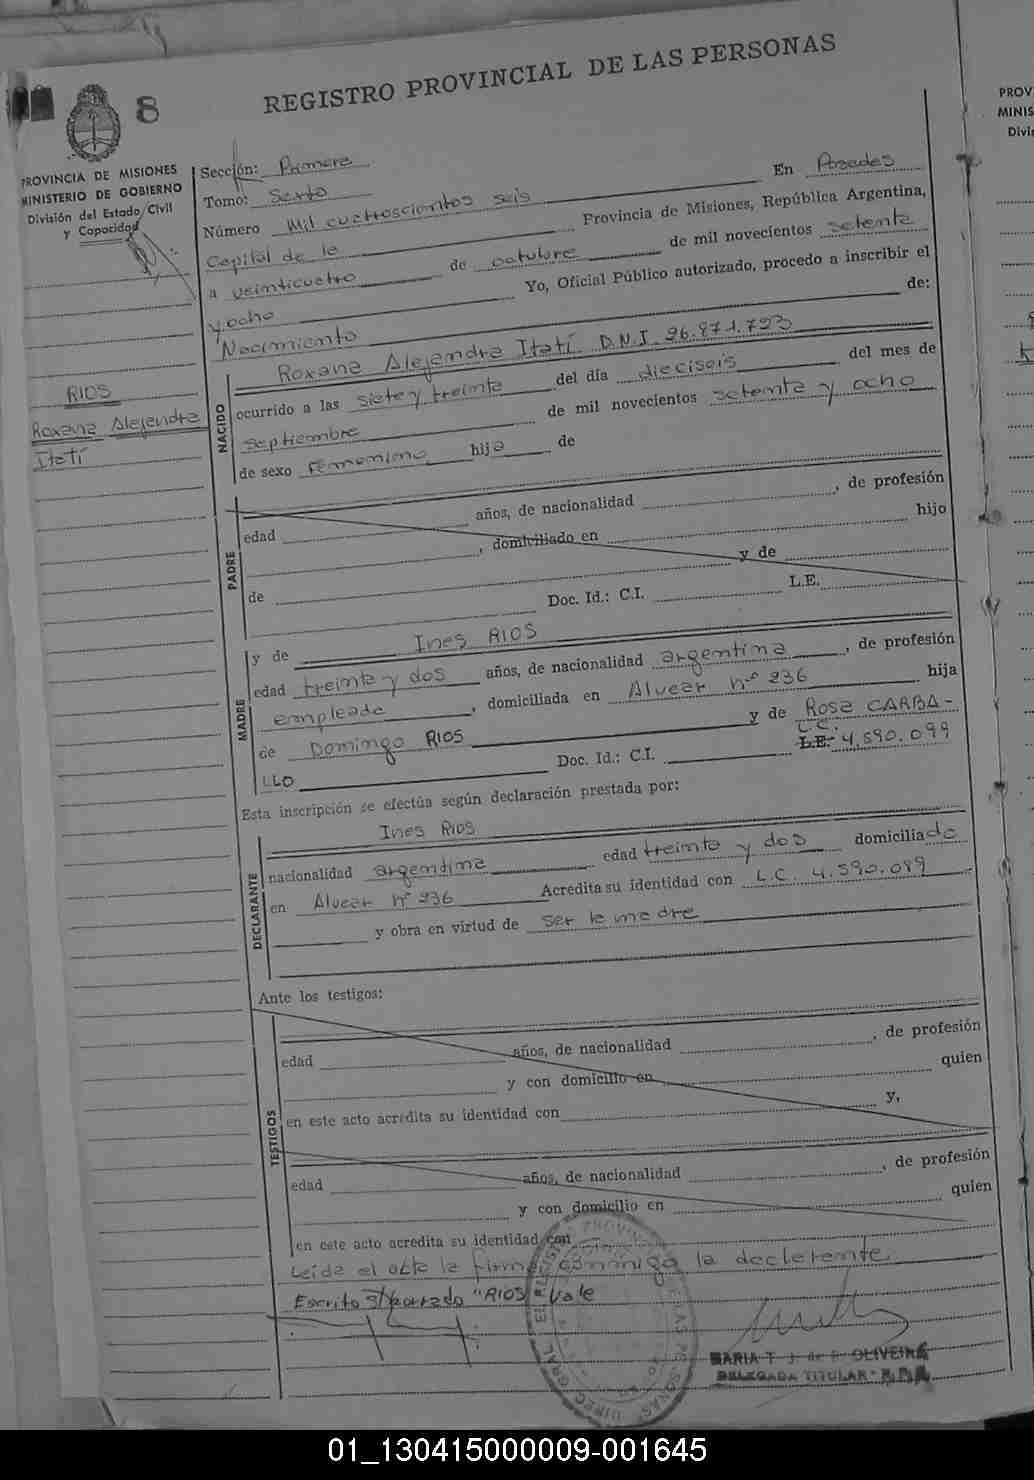 8
REGISTRO PROVINCIAL DE LAS PERSONAS
PROVINCIA DE MISIONES
MINISTERIO DE GOBIERNO
División del Estado Civil
y Capacidad
RIOS
Roxana Alejandra
Itatí
Sección: Primera
Tomo: Sexto
Número Mil cuatroscientos seis En Posadas
Capital de la Provincia de Misiones, República Argentina,
a veinticuatro de octubre de mil novecientos setenta
y ocho Yo, Oficial Público autorizado, procedo a inscribir el
Nacimiento de:
NACIDO
Roxana Alejandra Itatí D.N.I. 26.871.723
ocurrido a las siete y treinta del día dieciseis del mes de
septiembre de mil novecientos setenta y ocho
de sexo femenino hija de
PADRE
edad años, de nacionalidad , de profesión
, domiciliado en hijo
de y de
Doc. Id.: C.I. L.E.
MADRE
y de Ines RIOS
edad treinta y dos años, de nacionalidad argentina , de profesión
empleada , domiciliada en Alvear nº 236 hija
de Domingo RIOS y de Rosa CARBA-
LLO Doc. Id.: C.I. L.E. L.C. 4.590.099
Esta inscripción se efectúa según declaración prestada por:
DECLARANTE
Ines RIOS
nacionalidad argentina edad treinta y dos domiciliada
en Alvear nº 236 Acredita su identidad con L.C. 4.590.099
y obra en virtud de ser la madre
Ante los testigos:
TESTIGOS
edad años, de nacionalidad , de profesión
y con domicilio en quien
en este acto acredita su identidad con y,
edad años, de nacionalidad , de profesión
y con domicilio en quien
en este acto acredita su identidad con
Leída el acta la firma conmigo la declarante.
Escrito s/ "RIOS" Vale
MARIA T. J. de OLIVEIRA
DELEGADA TITULAR
PROV
MINIS
Divi
01_130415000009-001645